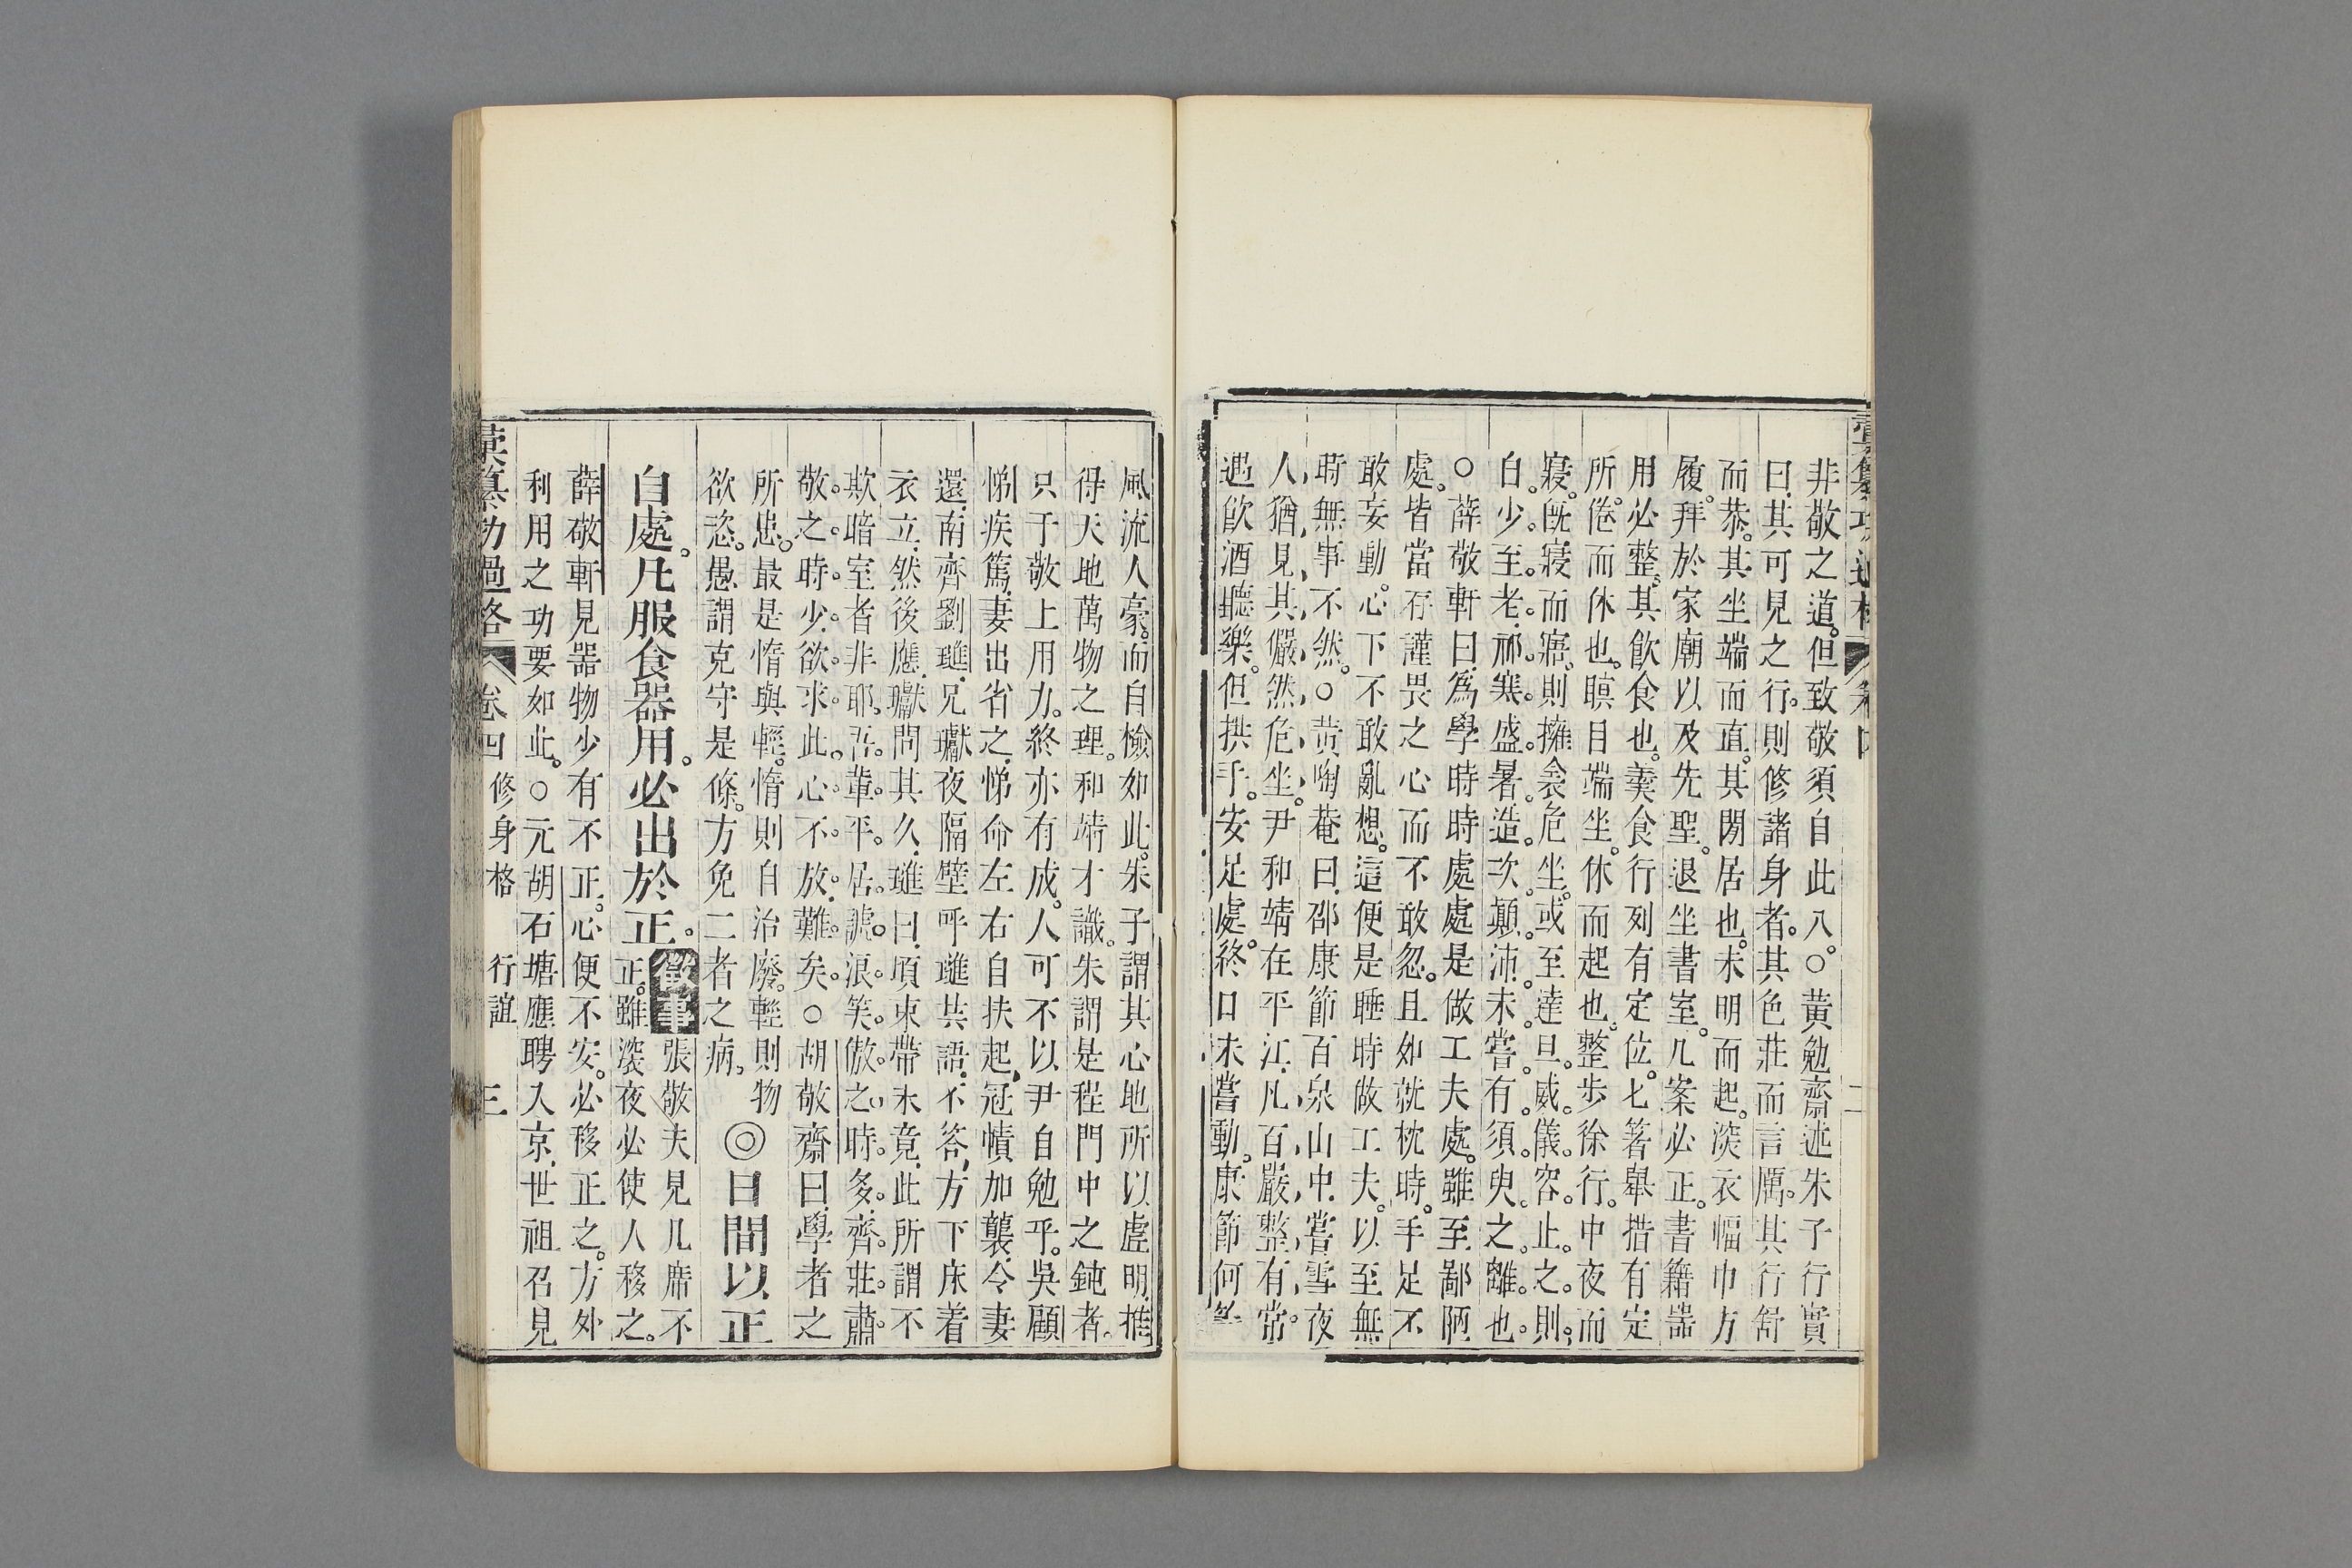 彙纂功過格 卷四 二
非敬之道。但致敬須自此入。○黃勉齋述朱子行實
曰。其可見之行。則修諸身者。其色莊而言厲。其行舒
而恭。其坐端而直。其閒居也。未明而起。深衣幅巾方
履。拜於家廟以及先聖。退坐書室。几案必正。書籍器
用必整。其飲食也。羹食行列有定位。匕箸舉措有定
所。倦而休也。瞑目端坐。休而起也。整步徐行。中夜而
寢。旣寢而寤。則擁衾危坐。或至達旦。威儀容止之則。
自少至老。祁寒盛暑。造次顛沛。未嘗有須臾之離也。
○薛敬軒曰。爲學時時處處是做工夫處。雖至鄙陋
處。皆當存謹畏之心而不敢忽。且如就枕時。手足不
敢妄動。心下不敢亂想。這便是睡時做工夫。以至無
時無事不然。○黃陶菴曰。邵康節百泉山中。嘗雪夜
人猶見其儼然危坐。尹和靖在平江。凡百嚴整有常。
遇飮酒聽樂。但拱手。安足處。終日未嘗動。康節何等
風流人豪。而自檢如此。朱子謂其心地所以虛明。推
得天地萬物之理。和靖才識。朱謂是程門中之鈍者。
只于敬上用力。終亦有成。人可不以尹自勉乎。吳顧
悌疾篤。妻出省之。悌命左右自扶起。冠幘加襲。令妻
還。南齊劉璡。兄瓛夜隔壁呼璡共語。不答。方下床着
衣立。然後應。瓛問其久。璡曰。頃束帶未竟。此所謂不
欺暗室者非耶。吾輩平居。謔浪笑傲之時多。齊莊肅
敬之時少。欲求此心不放。難矣。○胡敬齋曰。學者之
所患。最是惰與輕。惰則自治廢。輕則物
欲恣。愚謂克守是條。方免二者之病。◎日間以正
自處。凡服食器用。必出於正。徵事張敬夫見几席不
正。雖深夜必使人移之。
薛敬軒見器物少有不正。心便不安。必移正之。方外
利用之功要如此。○元胡石塘應聘入京。世祖召見
彙纂功過格 卷四 修身格 行誼 三